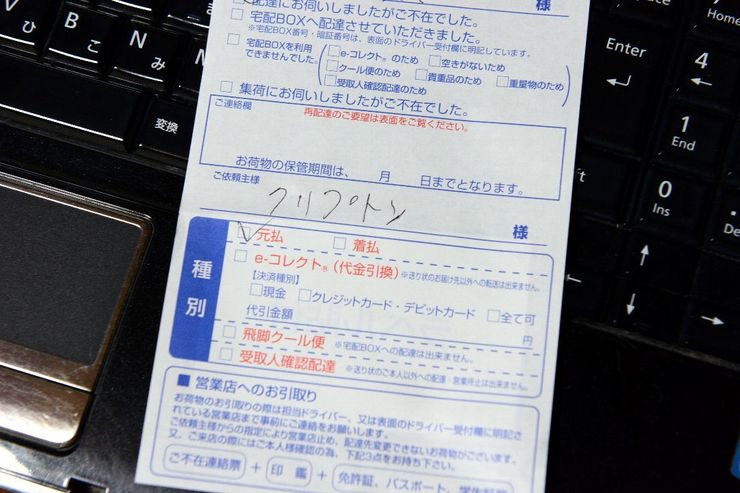 配達にお伺いしましたがご不在でした。
様
宅配BOXへ配達させていただきました。
※宅配BOX番号・暗証番号は、表面のドライバー受付欄に明記しています。
宅配BOXを利用できませんでした。
e-コレクト®のため 空きがないため
クール便のため 貴重品のため 重量物のため
受取人確認配達のため
集荷にお伺いしましたがご不在でした。
ご連絡欄
再配達のご要望は表面をご覧ください。
お荷物の保管期間は、 月 日までとなります。
ご依頼主様
クリプトン 様
種別
元払 着払
e-コレクト®(代金引換) ※送り状のお届け先以外への転送は出来ません。
【決済種別】
現金 クレジットカード・デビットカード 全て可
代引金額 円
飛脚クール便 ※宅配BOXへの配達は出来ません。
受取人確認配達 ※送り状のご本人以外への配達・営業所止は出来ません。
■ 営業店へのお引取り
お荷物のお引取りの際は担当ドライバー、又は表面のドライバー受付欄に明記さ
れている営業店まで事前にご連絡をお願いします。
ご依頼主様からの指定により営業店止め、配達先変更できないお荷物がございます。
又、ご来店の際にはご本人様確認の為、下記3点をお持ち下さい。
ご不在連絡票 + 印鑑 + 免許証、パスポート、学生証等
Enter
Home
1
End
0
Ins
De
B
N
ひ
こ
み
M
変換